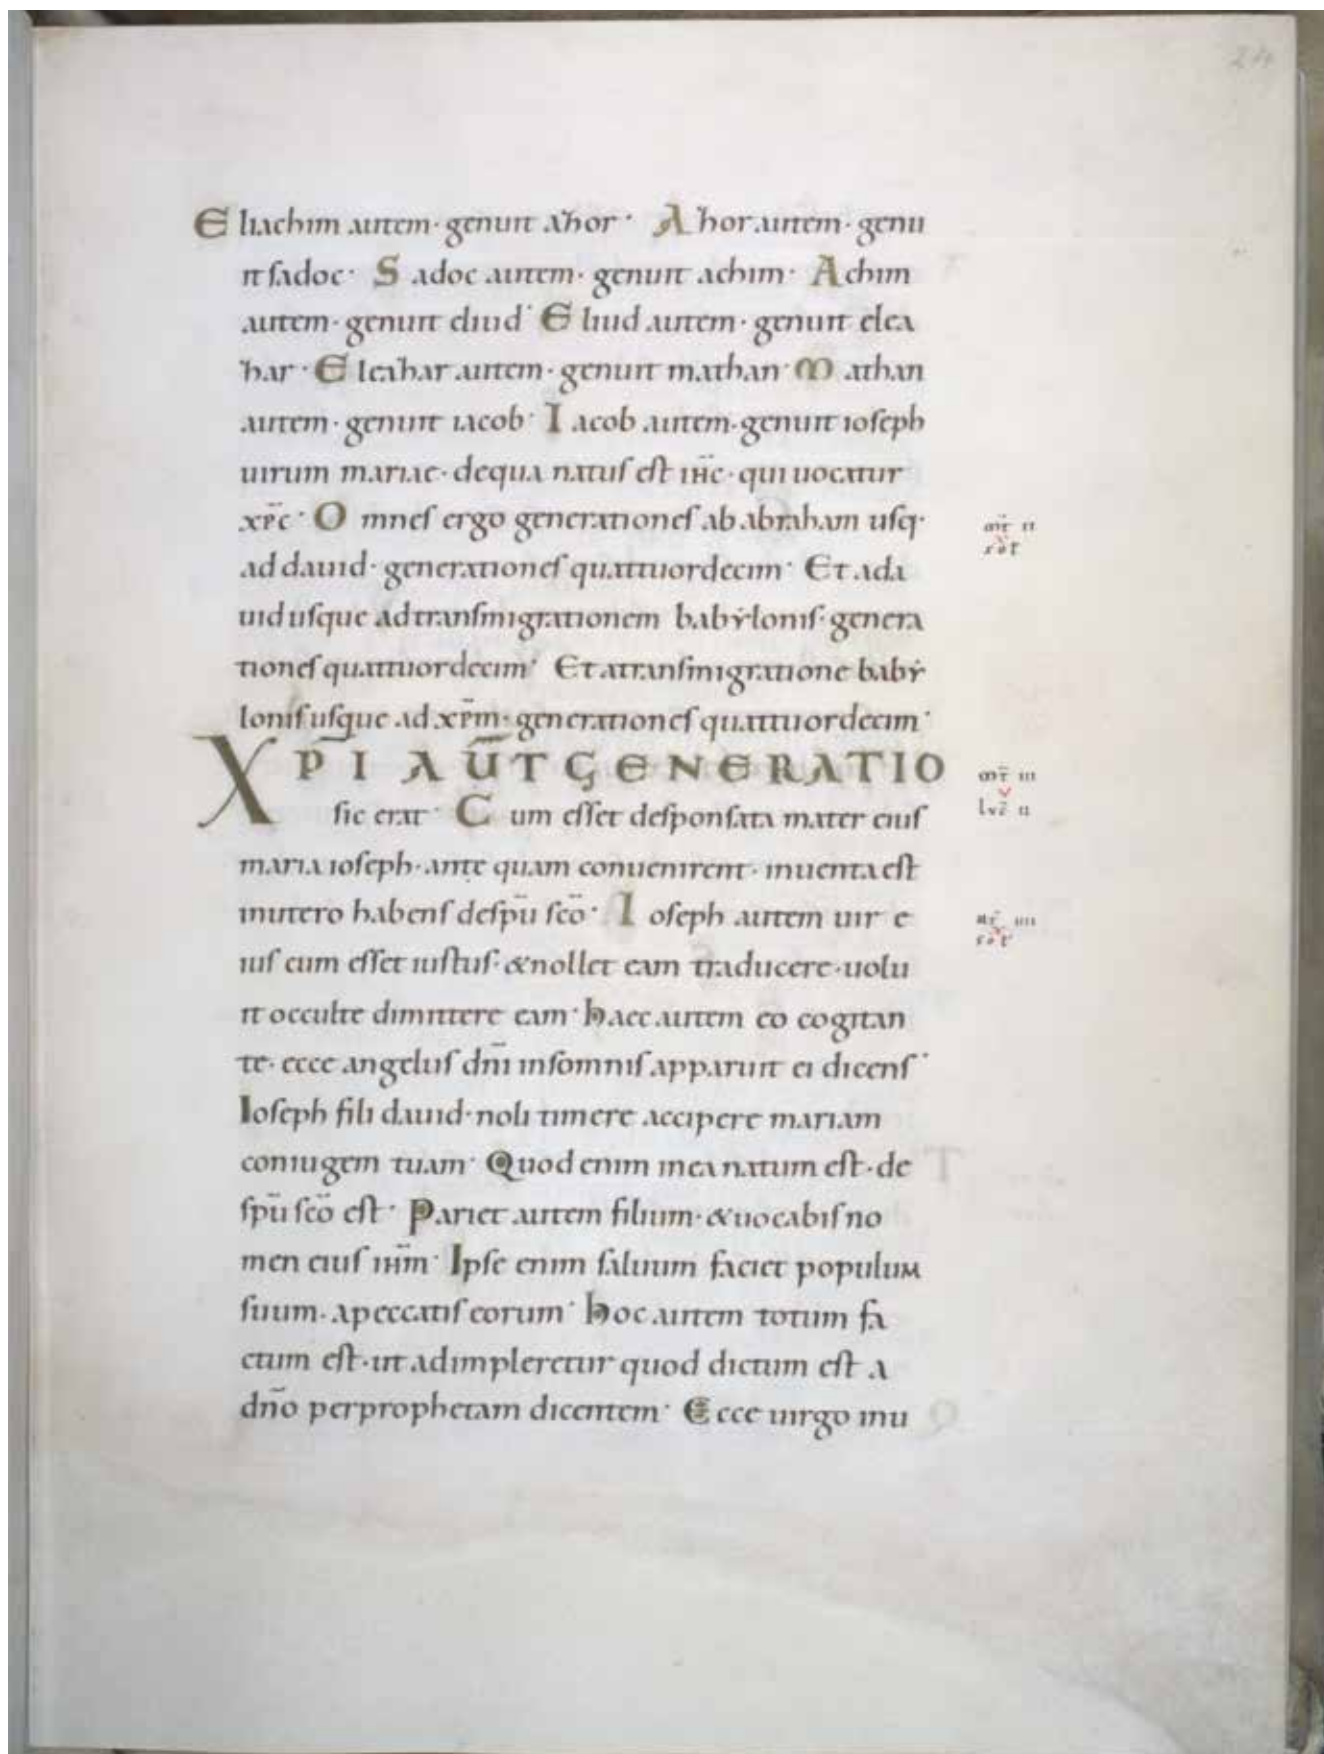 24
Eliachim autem · genuit azor · Azor autem · genu
it sadoc · Sadoc autem · genuit achim · Achim
autem · genuit eliud · Eliud autem · genuit elea
zar · Eleazar autem · genuit mathan · Mathan
autem · genuit iacob · Iacob autem · genuit ioseph
uirum mariae · dequa natus est ih̅c · qui uocatur
xp̅c · Omnes ergo generationes ab abraham usq·
ad dauid · generationes quattuordecim · Et ada
uid usque ad transmigrationem babẏlonis · genera
tiones quattuordecim · Et atransmigratione babẏ
lonis usque ad xp̅m · generationes quattuordecim ·
XP̅I AU̅T GENERATIO
sic erat · Cum esset desponsata mater eius
maria ioseph · ante quam conuenirent · inuenta est
inutero habens despu̅ sco̅ · Ioseph autem uir e
ius cum esset iustus · & nollet eam traducere · uolu
it occulte dimittere eam · haec autem eo cogitan
te · ecce angelus dn̅i insomnis apparuit ei dicens ·
Ioseph fili dauid · noli timere accipere mariam
coniugem tuam · Quod enim inea natum est · de
spu̅ sco̅ est · Pariet autem filium · & uocabis no
men eius ih̅m · Ipse enim saluum faciet populum
suum · apeccatis eorum · hoc autem totum fa
ctum est · ut adimpleretur quod dictum est a
dn̅o perprophetam dicentem · Ecce uirgo inu
mt̅ ii
mt̅ iii
luc̅ ii
mt̅ iiii